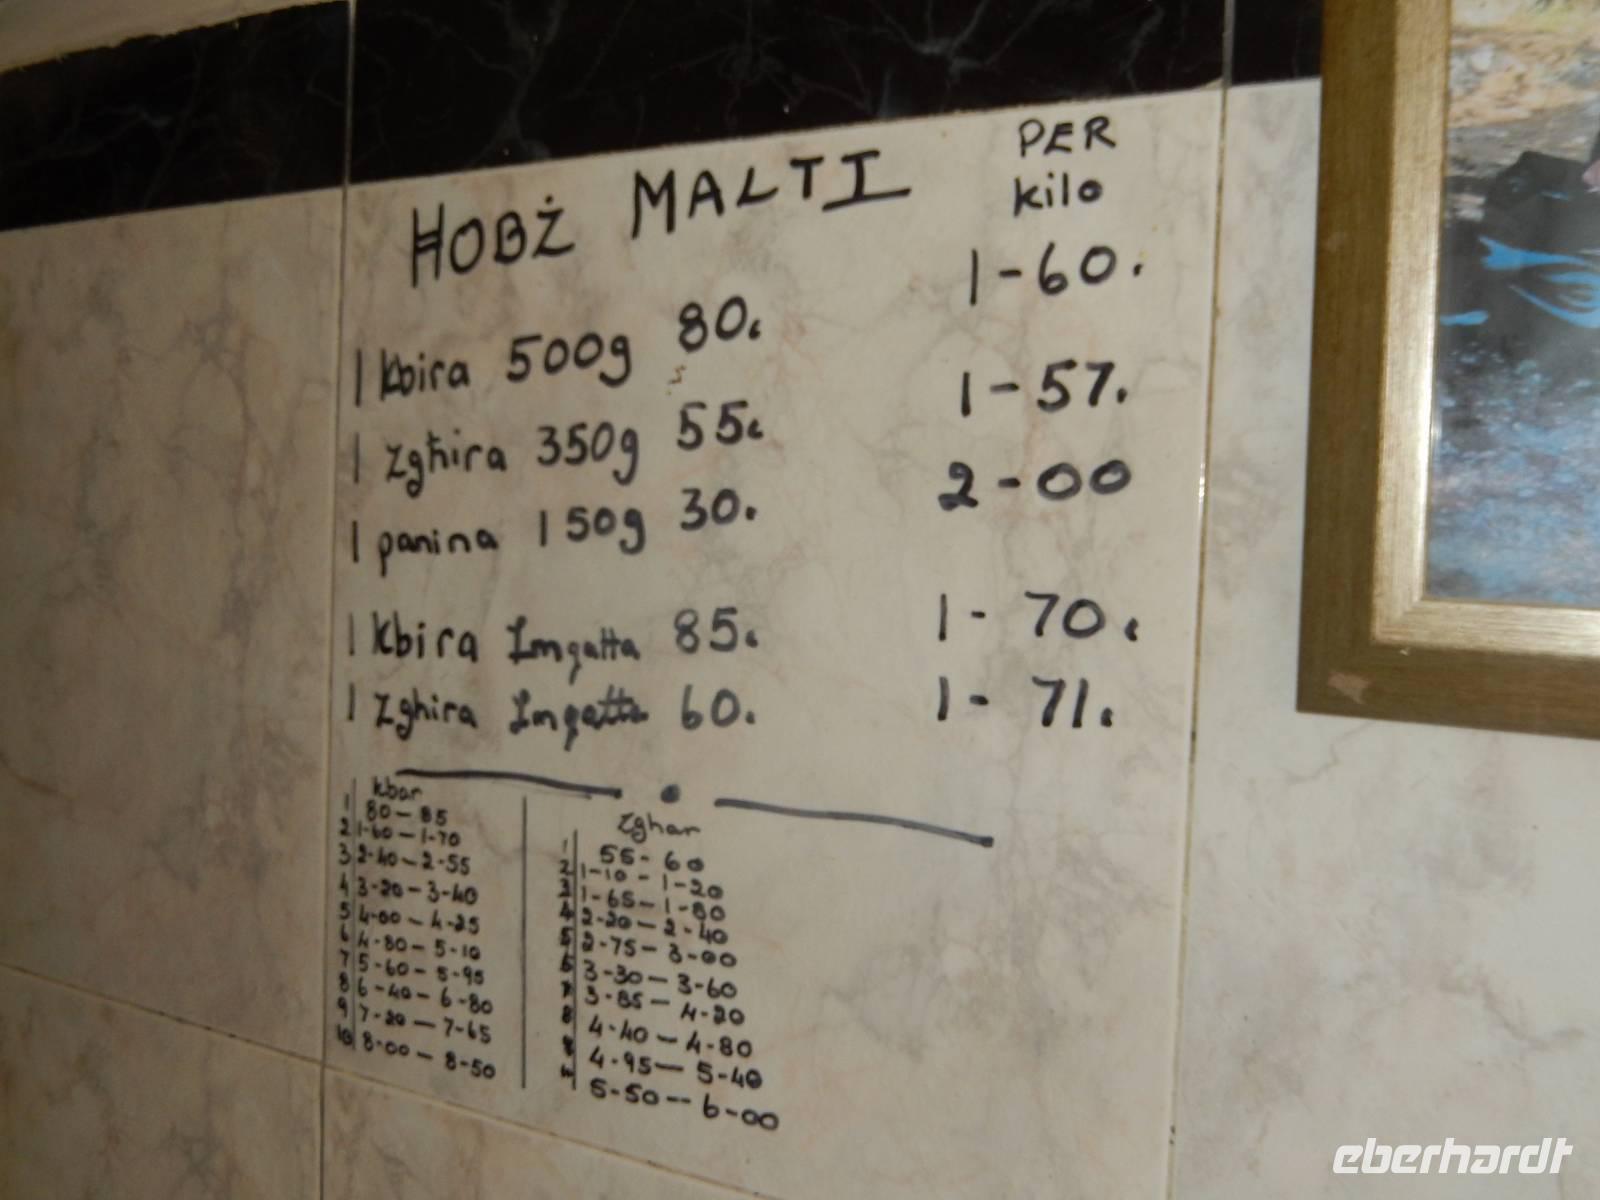 ĦOBŻ MALTI PER kilo
1 kbira 500g 80c 1-60.
1 zgħira 350g 55c 1-57.
1 panina 150g 30. 2-00
1 kbira Imqatta 85c 1-70c
1 zghira Imqatta 60. 1-71.
kbar
1 80-85
2 1-60-1-70
3 2-40-2-55
4 3-20-3-40
5 4-00-4-25
6 4-80-5-10
7 5-60-5-95
8 6-40-6-80
9 7-20-7-65
10 8-00-8-50
zghar
1 55-60
2 1-10-1-20
3 1-65-1-80
4 2-20-2-40
5 2-75-3-00
6 3-30-3-60
7 3-85-4-20
8 4-40-4-80
4-95-5-40
5-50-6-00
eberhardt